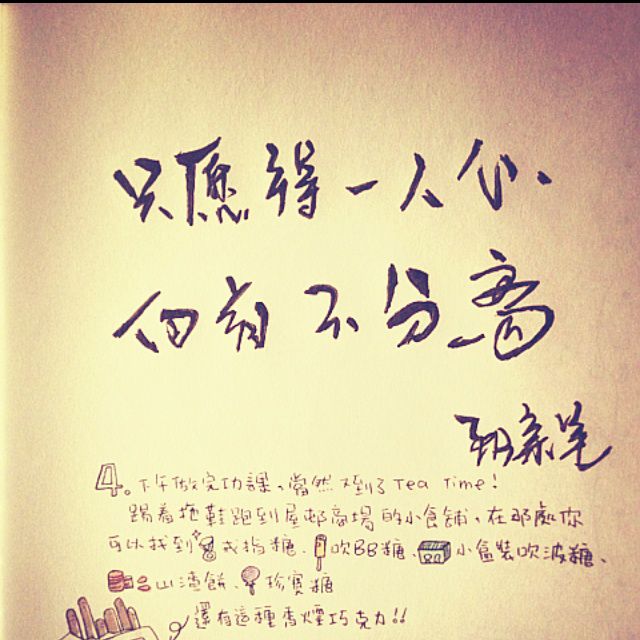 只愿得一人心、
白首不分离
親筆
4。下午做完功課、當然又到了Tea Time!
踢着拖鞋跑到屋邨商場的小食舖、在那處你
可以找到戒指糖、吹BB糖、小盒裝吹波糖、
山渣餅、珍寶糖
還有這種香煙巧克力!!